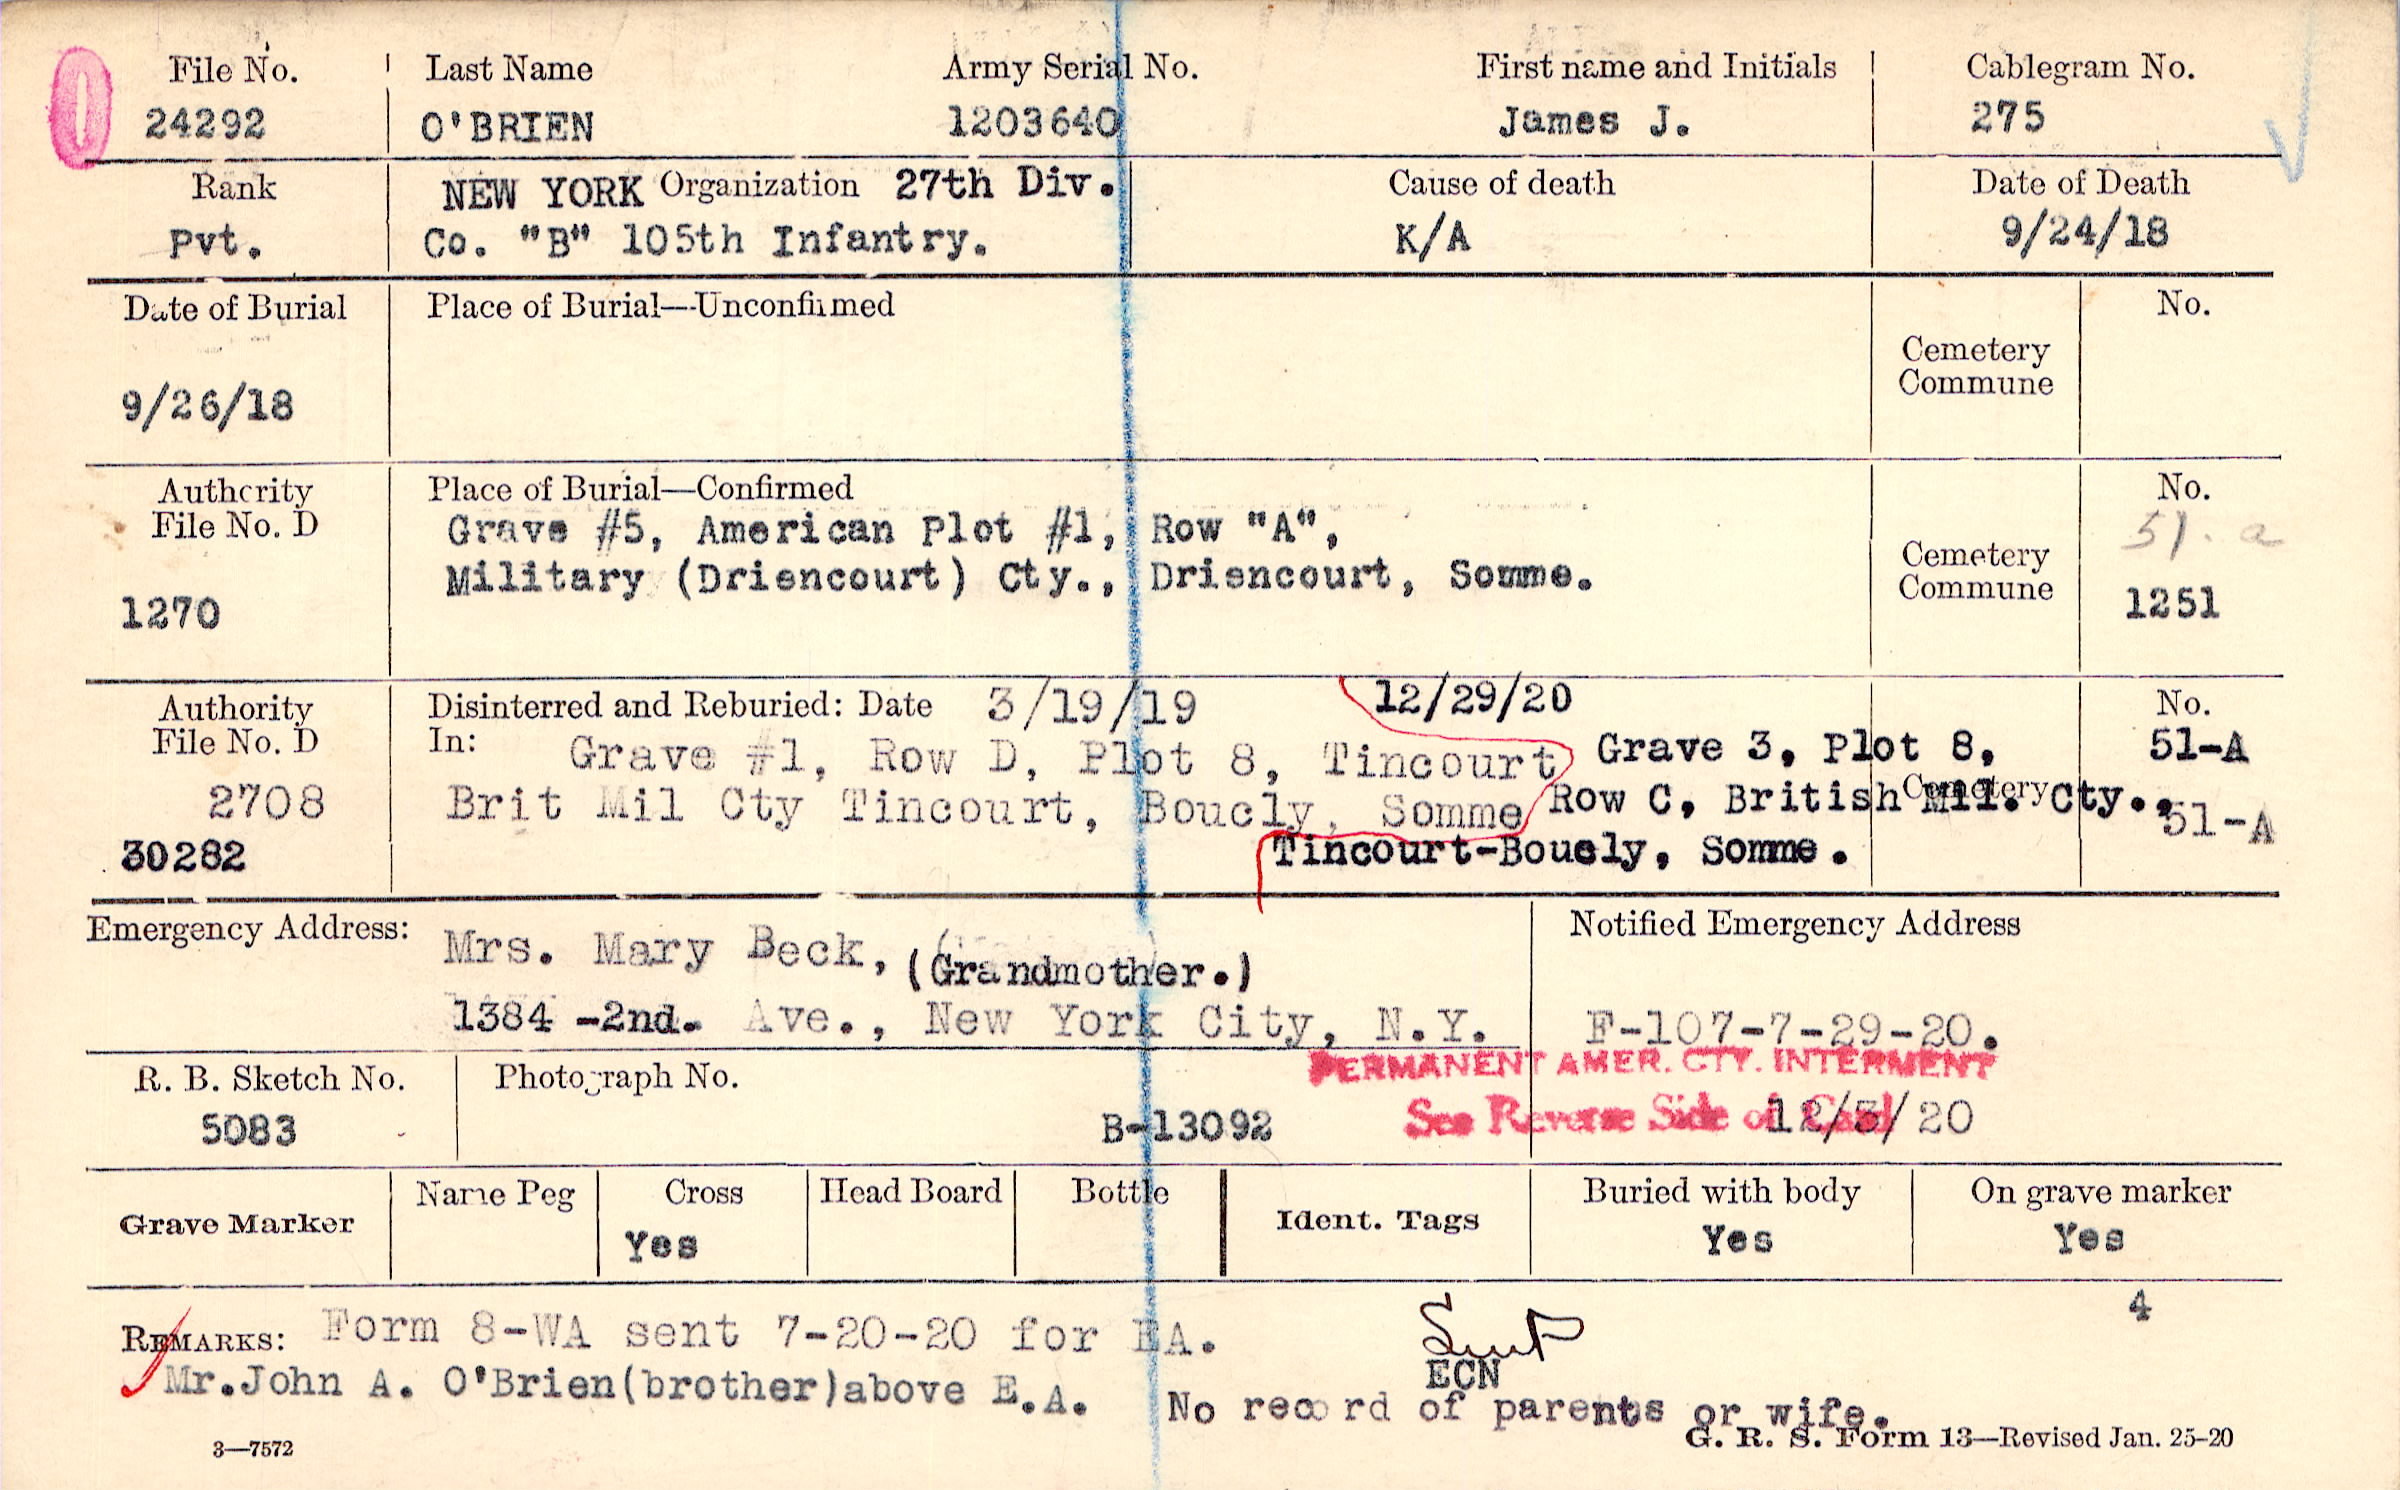 File No. Last Name Army Serial No. First name and Initials Cablegram No.
24292 O'BRIEN 1203640 James J. 275
Rank NEW YORK Organization 27th Div. Cause of death Date of Death
Pvt. Co. "B" 105th Infantry. K/A 9/24/18
Date of Burial Place of Burial—Unconfirmed No.
Cemetery
Commune
9/26/18
Authority Place of Burial—Confirmed No.
File No. D Grave #5, American Plot #1, Row "A", 51-a
Military (Driencourt) Cty., Driencourt, Somme. Cemetery
Commune
1270 1251
Authority Disinterred and Reburied: Date 3/19/19 12/29/20 No.
File No. D In: Grave #1, Row D, Plot 8, Tincourt Grave 3, Plot 8, 51-A
2708 Brit Mil Cty Tincourt, Boucly, Somme Row C, British Mil. Cty., Cemetery 51-A
30282 Tincourt-Boucly, Somme.
Emergency Address: Notified Emergency Address
Mrs. Mary Beck, (Grandmother.)
1384 -2nd. Ave., New York City, N.Y. F-107-7-29-20.
PERMANENT AMER. CTY. INTERMENT
R. B. Sketch No. Photograph No.
5083 B-13092 See Reverse Side of Card 12/3/20
Grave Marker Name Peg Cross Head Board Bottle Ident. Tags Buried with body On grave marker
Yes Yes Yes
4
REMARKS: Form 8-WA sent 7-20-20 for EA.
ECN
Mr.John A. O'Brien(brother)above E.A. No record of parents or wife.
3—7572 G. R. S. Form 13—Revised Jan. 25-20